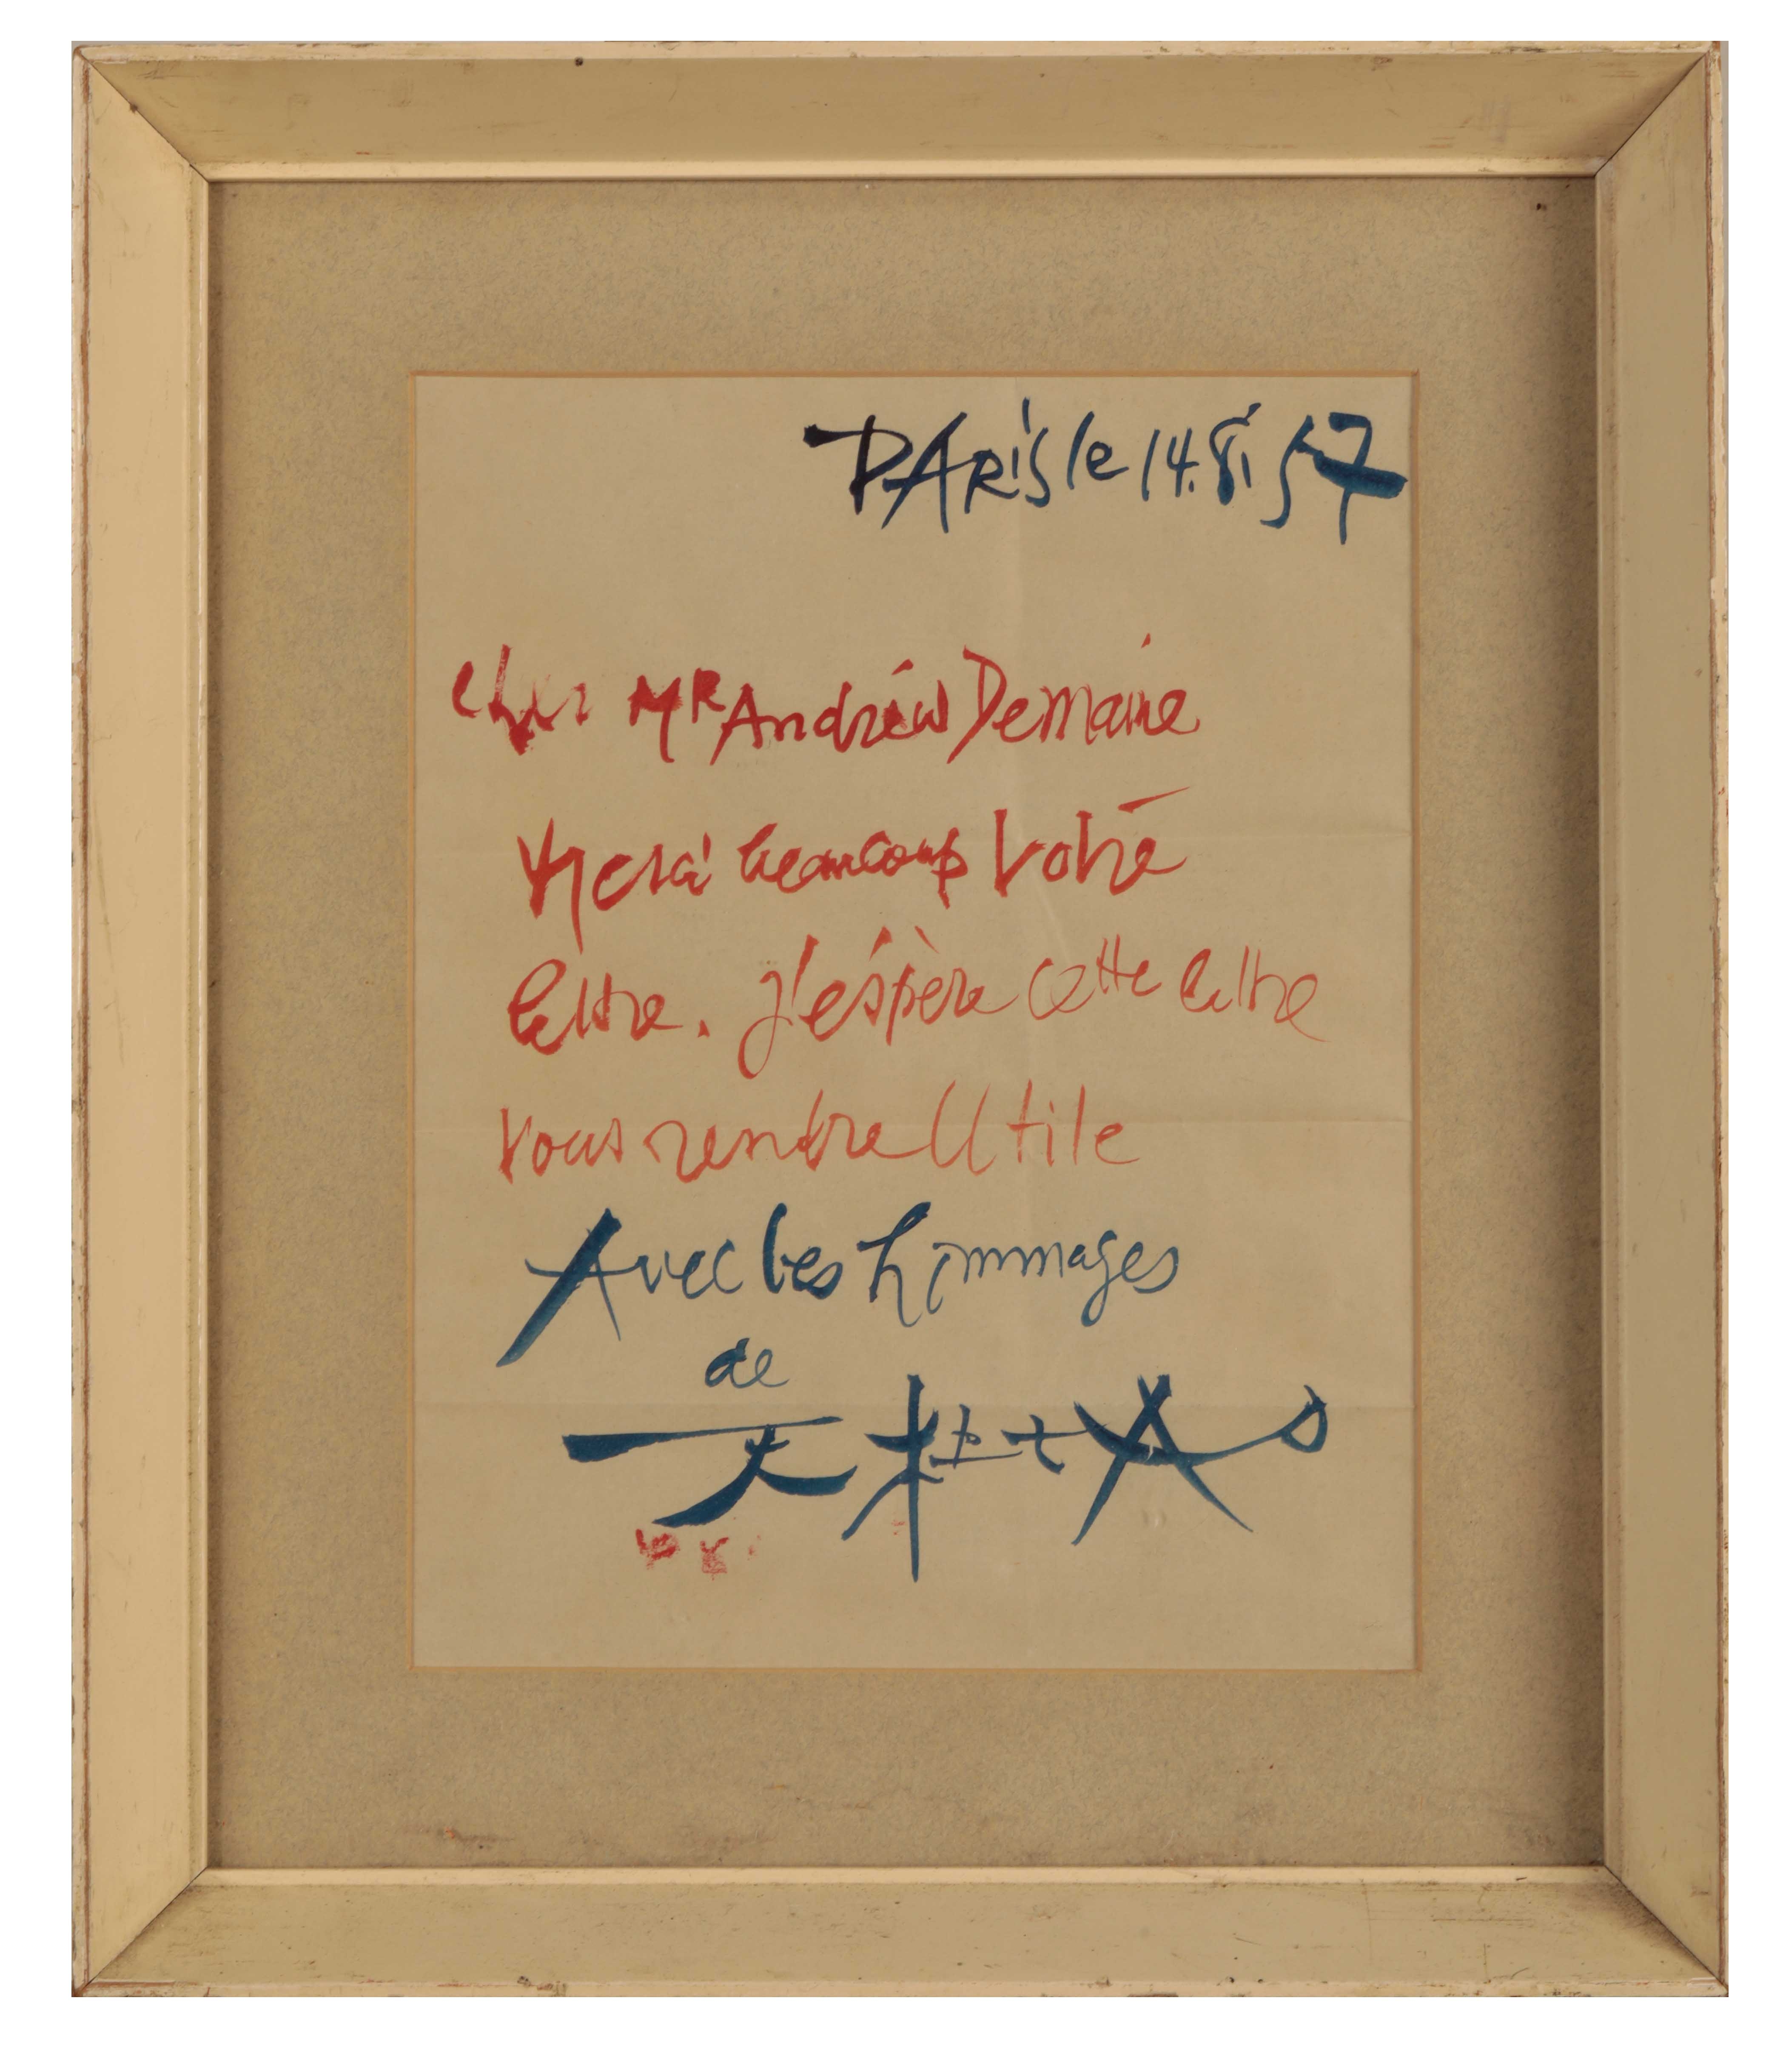 PARis le 14.8.57
cher MR Andréw Demaine
Merci beaucoup Votre
lettre. J'éspère cette lettre
Vous rendre Utile
Avec les hommages
de